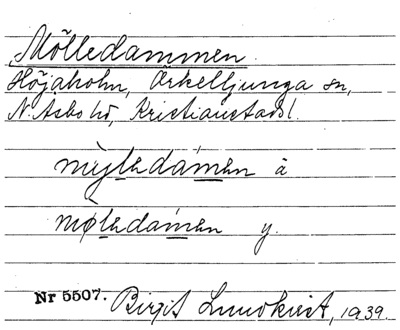 Mölledammen.
Höjaholm, Örkelljunga sn,
N. Åsbo hd, Kristianstads l.
mỳlledám̲en ä
mø̀l̲edám̲en y.
Nr 5507. Birgit Lundkvist, 1939.